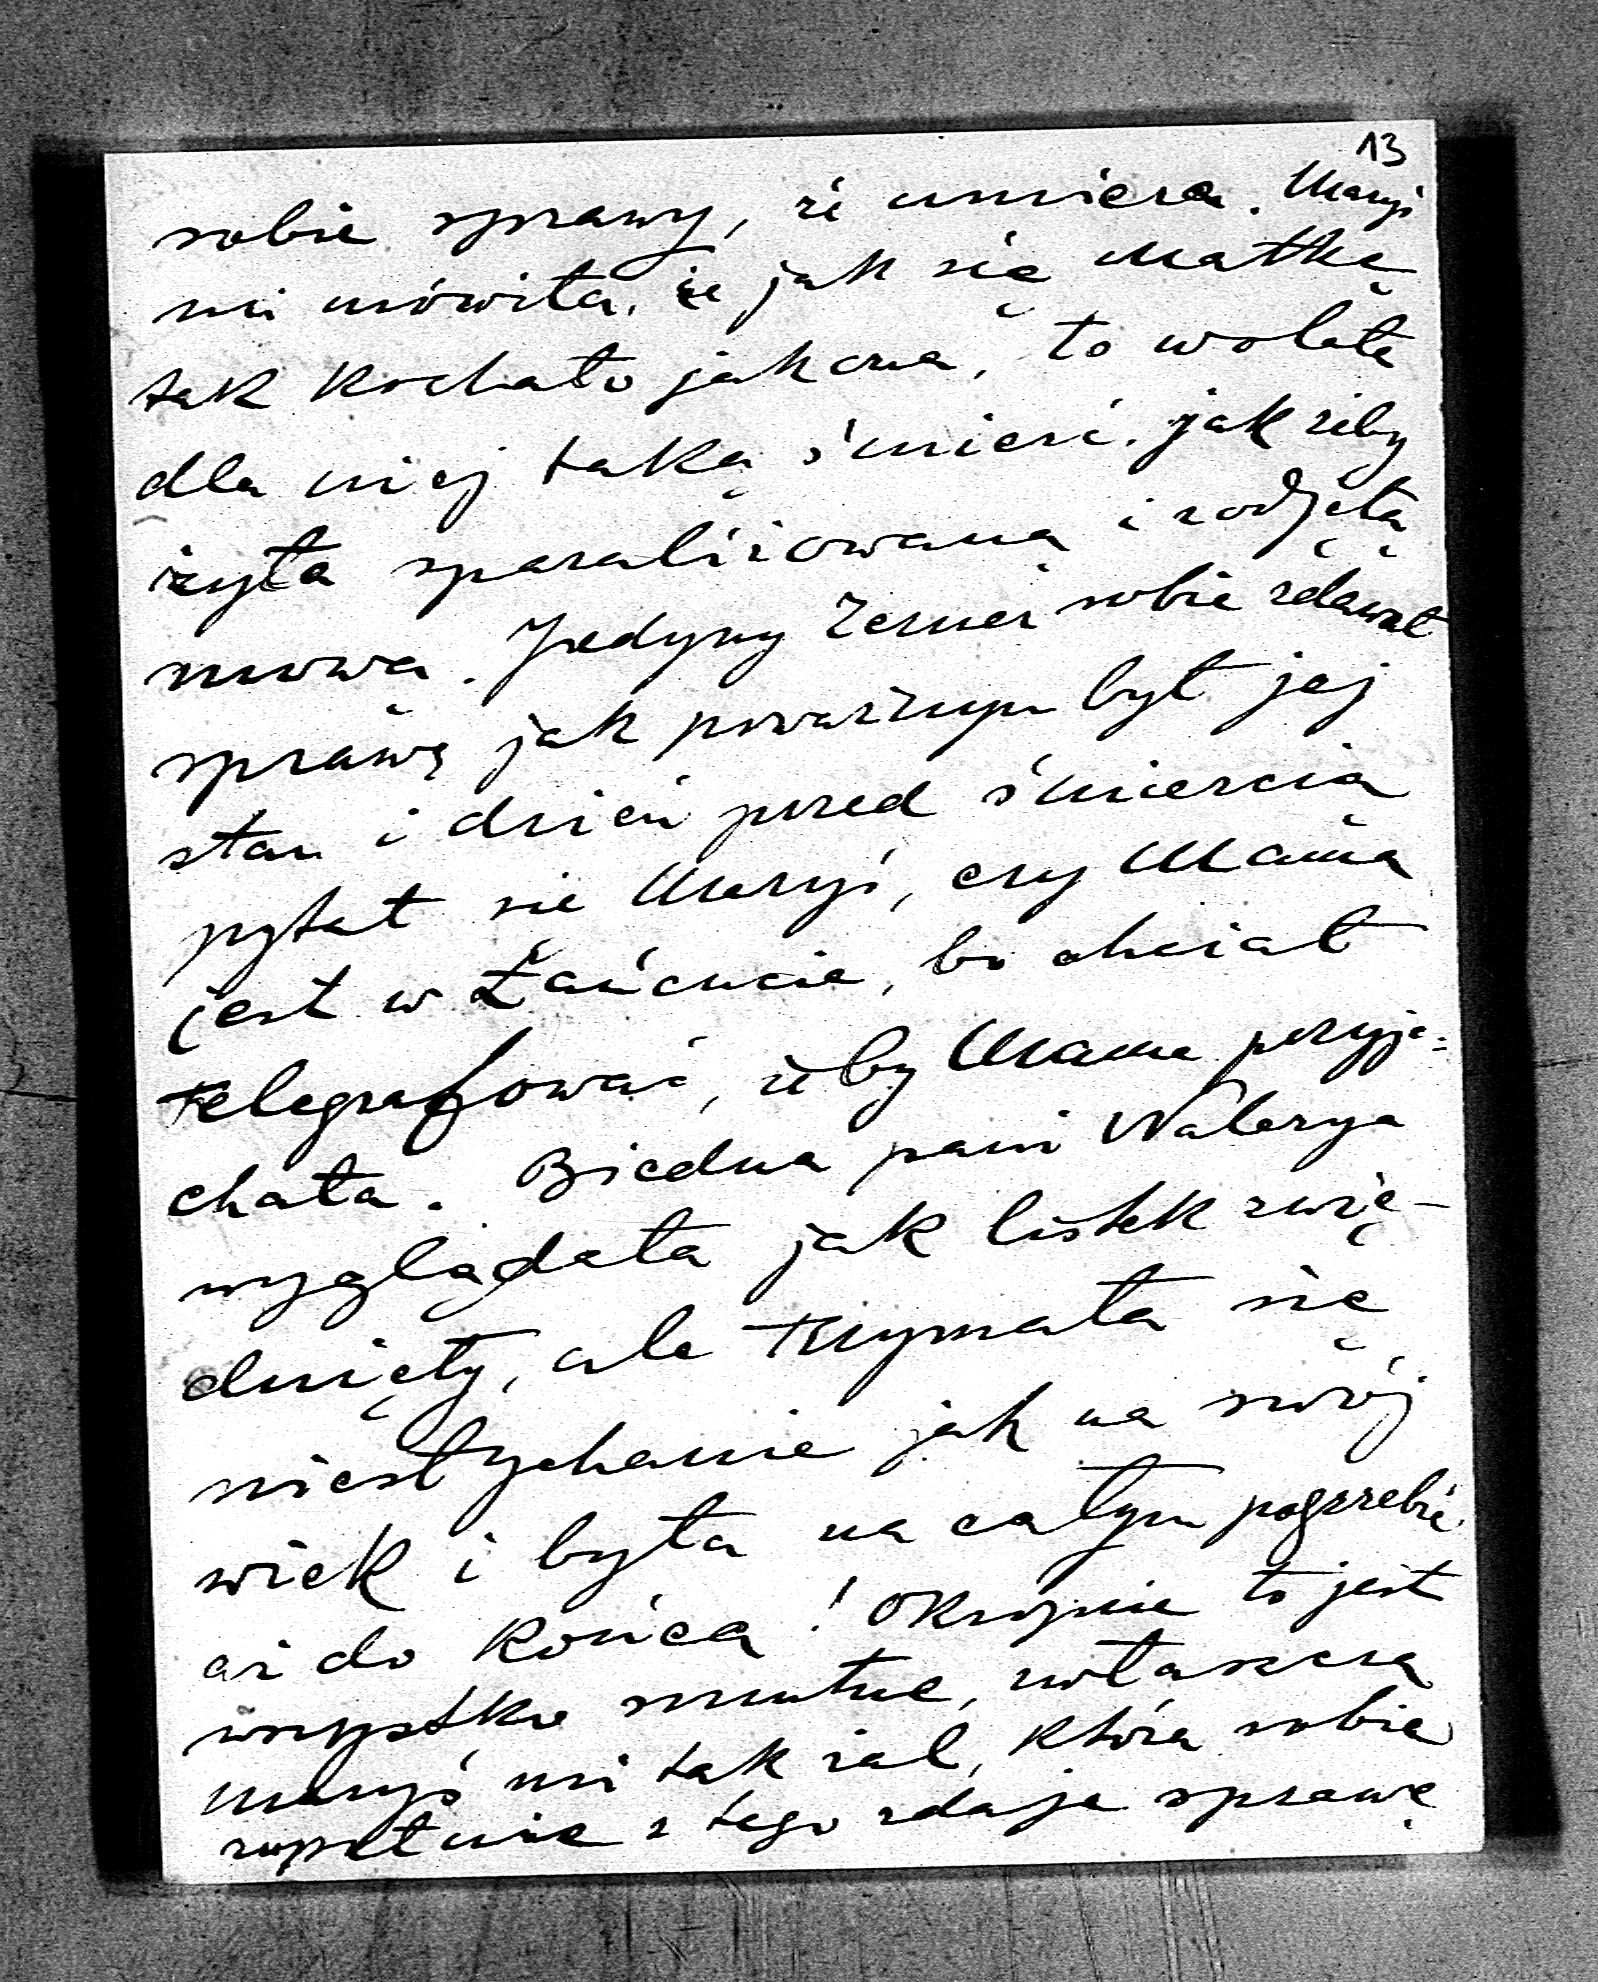 13
sobie sprawy, że umiera. Maryś
mi mówiła, że jak się Matkę
tak kochało jak ona, to wolała
dla niej taką śmierć, jak żeby
żyła sparaliżowaną i z odjętą
mową. Jedyny sobie zdawał
sprawę jak poważnym był jej
stan i dzień przed śmiercią
pytał się Maryś, czy Mama
jest w Łańcucie, bo chciał
telegrafować, żeby Mama przyje=
chała. Biedna pani Walerya
wyglądała jak listek zwię-
dnięty, ale trzymała się
niesłychanie jak na swój
wiek i była na całym pogrzebie
aż do końca! Okropnie to jest
wszystko smutne, zwłaszcza
Maryś mi tak żal, która sobie
zupełnie z tego zdaje sprawę